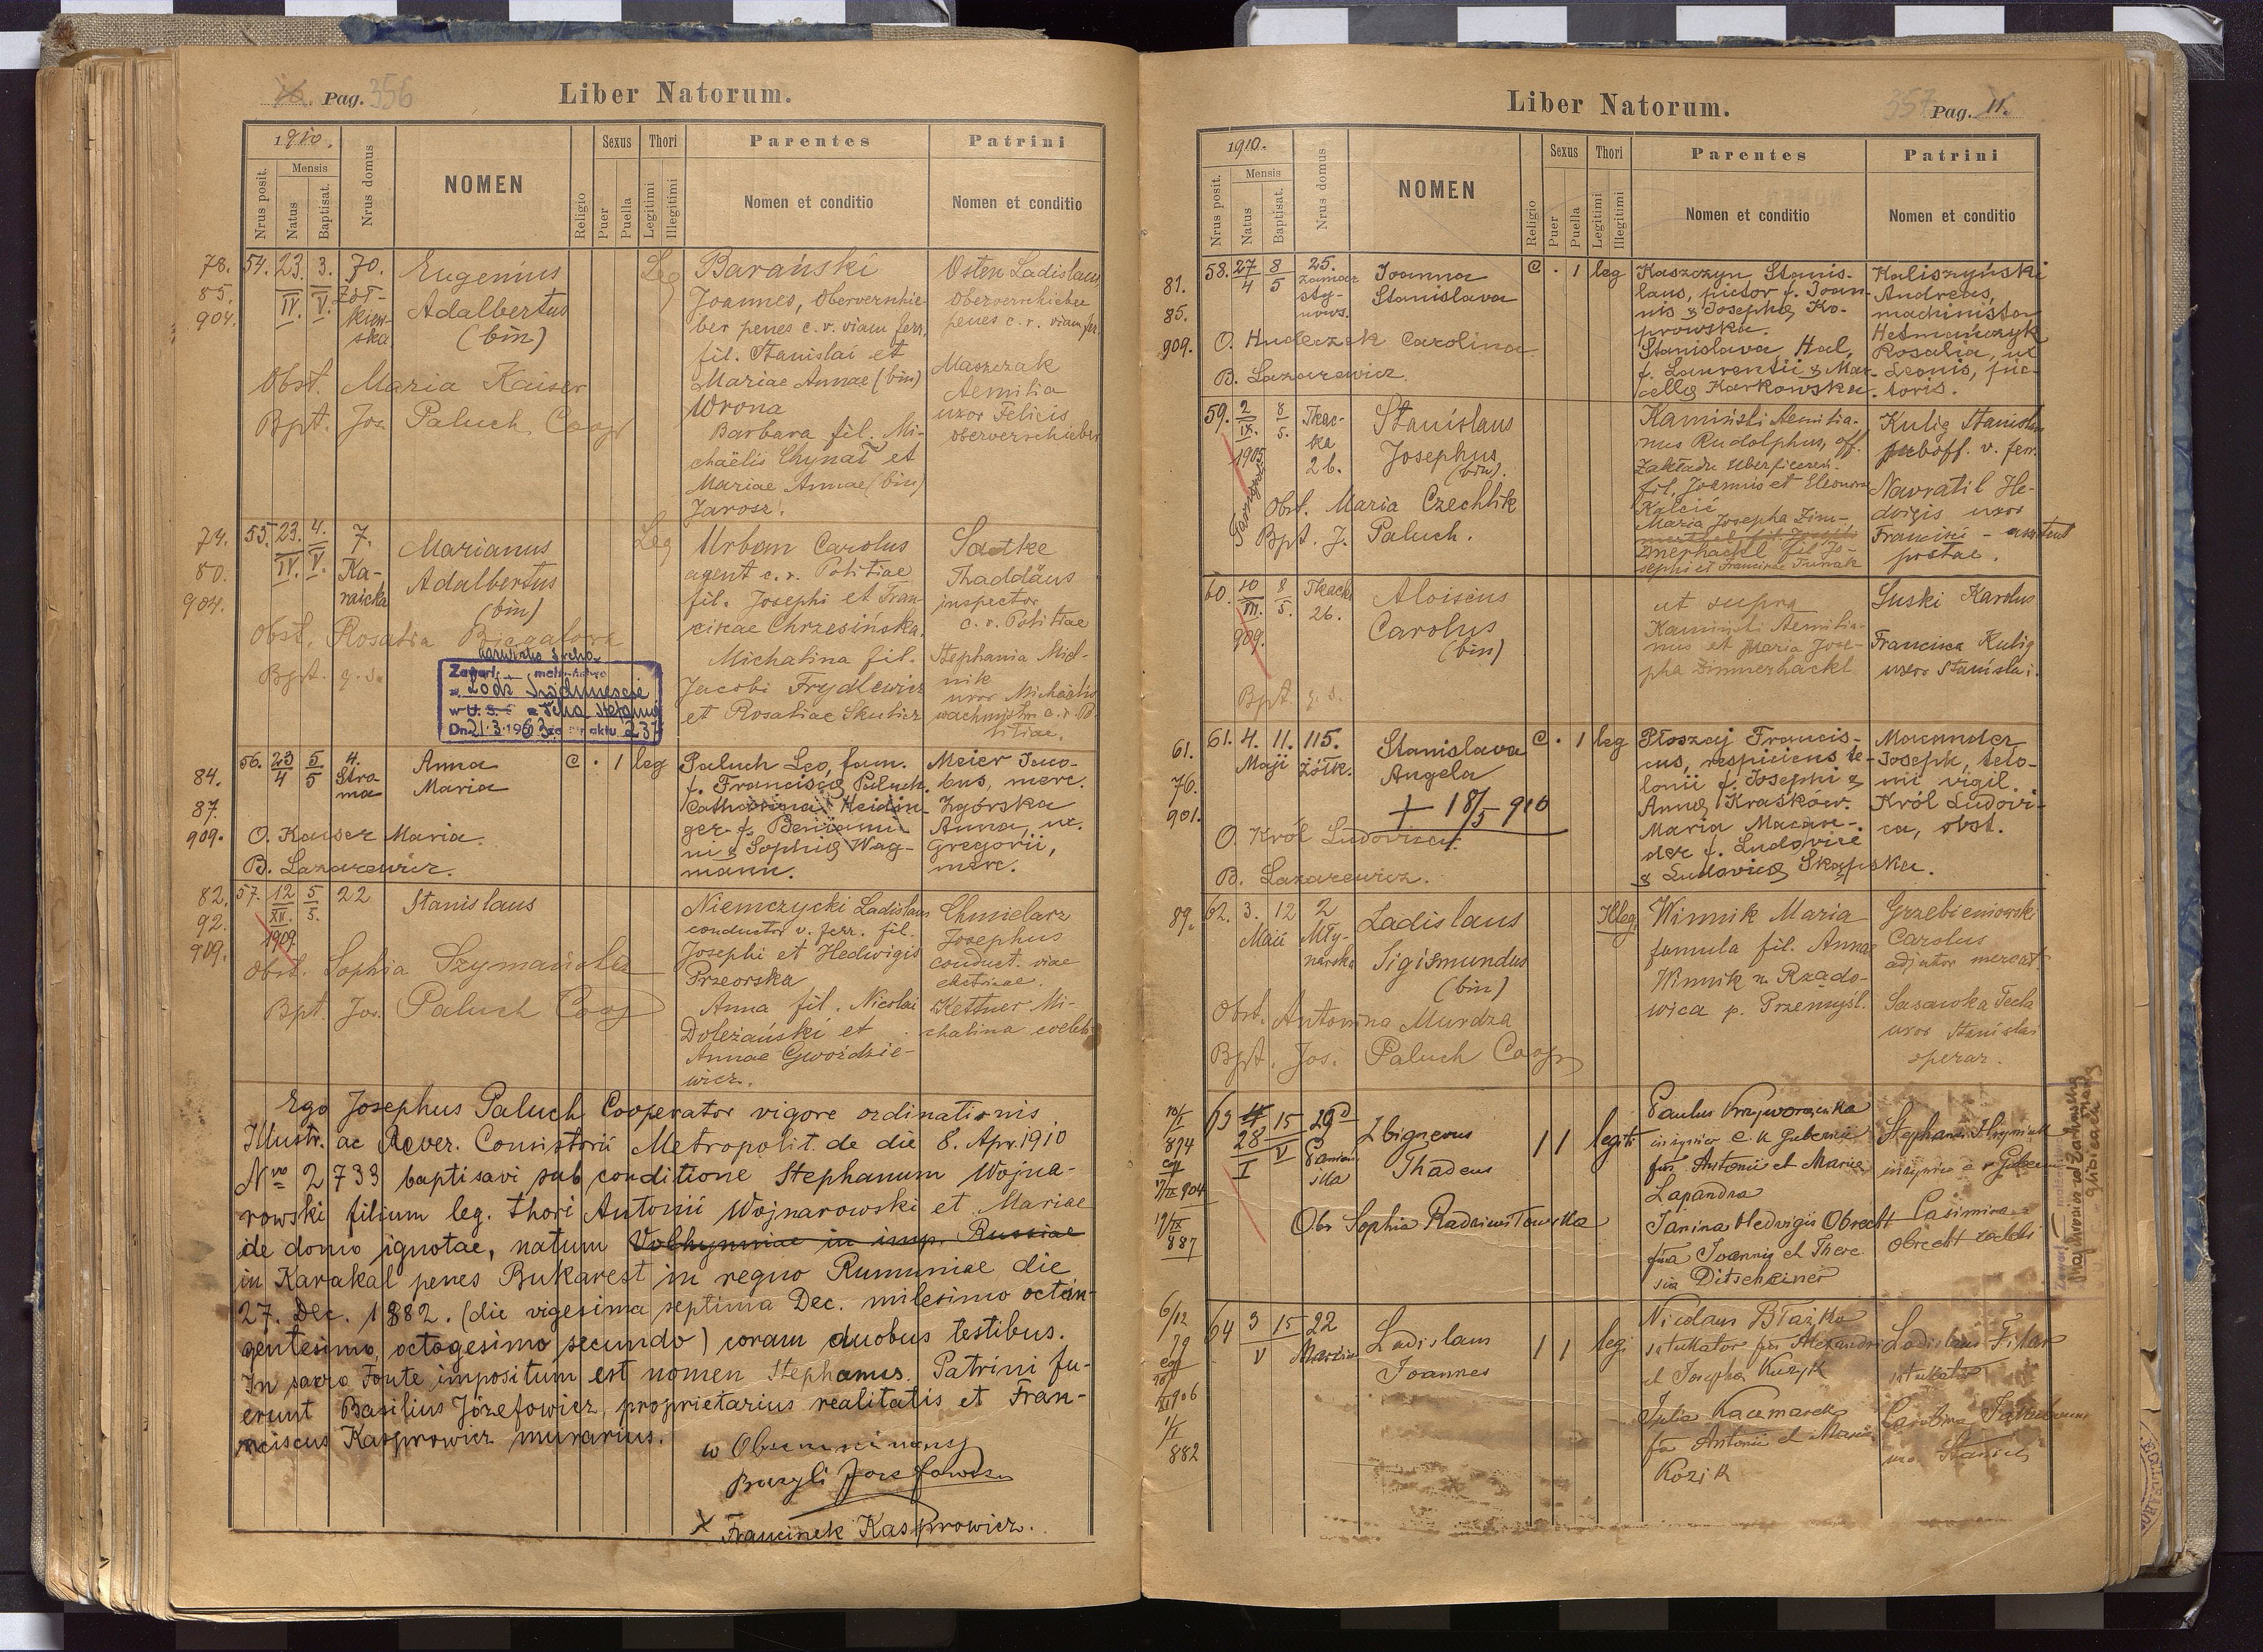 Pag. 356
Liber Natorum.
1910.
Nrus posit.
Mensis
Natus
Baptisat.
Nrus domus
NOMEN
Religio
Sexus
Puer
Puella
Thori
Legitimi
Illegitimi
Parentes
Nomen et conditio
Patrini
Nomen et conditio
78.
85.
904.
54. 23. 3. 70.
IV. V. Żół-
kiew-
ska
Eugenius
Adalbertus
(bin)
Leg
Obst. Maria Kaiser
Bpt. Jos. Paluch Coop
Barański
Joannes, Oberverschie-
ber penes c. r. viam ferr.
fil. Stanislai et
Mariae Annae (bin)
Wrona
Barbara fil. Mi-
chaëlis Chynał et
Mariae Annae (bin)
Jarosz.
Osten Ladislaus
Oberverschieber
penes c. r. viam fer.
Maszczak
Aemilia
uxor Felicis
oberverschieber
74.
80.
904.
55. 23. 4. 7.
IV. V. Ka-
raicka
Marianus
Adalbertus
(bin)
Leg
Obst. Rosalia Biegałowa
Bpt. q. s.
Urban Carolus
agent c. r. Politiae
fil. Josephi et Fran-
cicae Chrzesińska.
Michalina fil.
Jacobi Frydlewicz
et Rosaliae Skulicz
Sadtke
Thaddäus
inspector
c. r. Politiae
Stephania Miel-
nik
uxor Michaëlis
wachmistrz c. r. Po-
litiae.
Zawarł
Łódź Śródmieście
w U. S. C.
Dn. 21.3.1963 aktu 237
84.
87.
909.
56. 23 5 4.
4 5 Stro
ma
Anna
Maria
C · 1 leg
O. Kaiser Maria.
B. Lazarewicz.
Paluch Leo, fam.
f. Franciscae Paluch.
Catharina Heidin-
ger f. Beniami-
ni & Sophiae Wag-
mann.
Meier Jaco-
bus, merc.
Zgórska
Anna, ux.
Gregorii,
merc.
82.
92.
909.
57. 12 5 22
XII. 5.
1909
Stanislaus
Obst. Sophia Szymańska
Bpt. Jos. Paluch Coop
Niemczycki Ladislaus
conductor v. ferr. fil.
Josephi et Hedwigis
Przeorska
Anna fil. Nicolai
Doleżański et
Annae Gwoździe-
wicz.
Chmielarz
Josephus
conduct. viae
electricae.
Kettner Mi-
chalina coelebs
Ego Josephus Paluch Cooperator vigore ordinationis
Illustr. ac Rever. Consistorii Metropolit. de die 8. Apr. 1910
Nro 2733 baptisavi sub conditione Stephanum Wojna-
rowski filium leg. thori Antonii Wojnarowski et Mariae
de domo ignotae, natum Volhyniae in imp. Russiae
in Karakal penes Bukarest in regno Rumuniae die
27. Dec. 1882. (die vigesima septima Dec. milesimo octin-
gentesimo octogesimo secundo) coram duobus testibus.
In sacro Fonte impositum est nomen Stephanus. Patrini fu-
erunt Basilius Józefowicz, proprietarius realitatis et Fran-
ciscus Kasprowicz murarius.
Bazyli Józefowicz
X Franciszek Kasprowicz.
Liber Natorum.
357 Pag. 11.
1910.
Nrus posit.
Mensis
Natus
Baptisat.
Nrus domus
NOMEN
Religio
Sexus
Puer
Puella
Thori
Legitimi
Illegitimi
Parentes
Nomen et conditio
Patrini
Nomen et conditio
81.
85.
909.
58. 27 8 25.
4 5 Zamar
sty-
nows.
Joanna
Stanislava
C · 1 leg
O. Hudeczek Carolina
B. Lazarewicz.
Kaszczyn Stanis-
laus, pictor f. Joan-
nis & Josephae Ko-
prowska.
Stanislava Hal,
f. Laurentii & Mar-
cellae Karkowska.
Kaliszyński
Andreas,
machinista
Hetmańczyk
Rosalia, ux
Leonis, pic-
toris.
59. 2 8 Tkac-
IX. 5. ka
1905 26.
Stanislaus
Josephus
(bin).
Obst. Maria Czechlik
Bpt. J. Paluch.
Kamiński Aemilia-
nus Rudolphus, off.
fil. Joannis et Eleonora
Kalcić
Maria Josepha Zim-
merhackl fil. Jo-
sephi et Francicae Funak
Kulig Stanislaus
suboff. v. ferr.
Navratil He-
dvigis uxor
Francisci - assistent
postae.
60. 10 8 Tkacka
XII. 5. 26.
909.
Aloisius
Carolus
(bin)
Bpt. q. s.
ut supra
Kamiński Aemilia-
nus et Maria Jose-
pha Zimmerhackl
Suski Karolus
Francisca Kulig
uxor Stanislai.
61.
76.
901.
61. 4. 11. 115.
Maji Żółk.
Stanislava
Angela
+ 18/5 910
C · 1 leg
O. Król Ludovica.
B. Lazarewicz.
Płoszaj Francis-
cus, respiciens te-
lonii f. Josephi &
Annae Kraśków.
Maria Macan-
der f. Ludovici
& Ludovicae Skąpska.
Macander
Joseph, telo-
nii vigil.
Król Ludovi-
ca, obst.
89.
62. 3. 12 2
Maii Mły-
narska
Ladislaus
Sigismundus
(bin)
Illeg.
Obst. Antonina Murdza
Bpt. Jos. Paluch Coop
Winnik Maria
famula fil. Annae
Winnik z Rzado-
wica p. Przemyśl.
Grzebieniowski
Carolus
adjutor mercat
Sasawka Tecla
uxor Stanislai
operar.
63 28 15 29
I V
Zbigneus
Thadeus
1 1 legit
Obs Sophia Radziwiłowska
Paulus Krzyworączka
fius Antonii et Mariae
Lapandra
Janina Hedvigis Obrecht
fia Joannis et There
sia Ditscheiner
Stephan Hryniuk
Casimira
Obrecht coelebs
64 3 15 22
V
Ladislaus
Joannes
1 1 legi
Nicolaus Błażko
stukator fius Alexandri
et Josepha Kuzyk
Julia Kaczmarek
fia Antonii et Maria
Kozik
Ladislaus Filar
stukator
Carolina